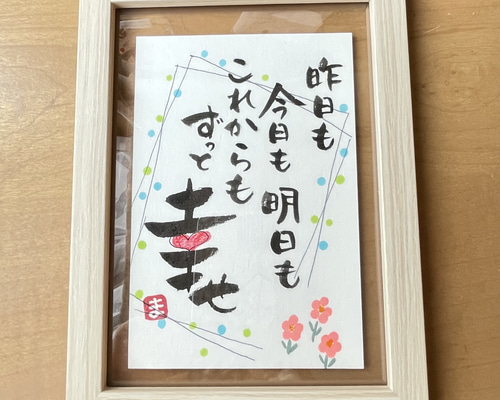 昨日も
今日も明日も
これからも
ずっと
幸せ
ま